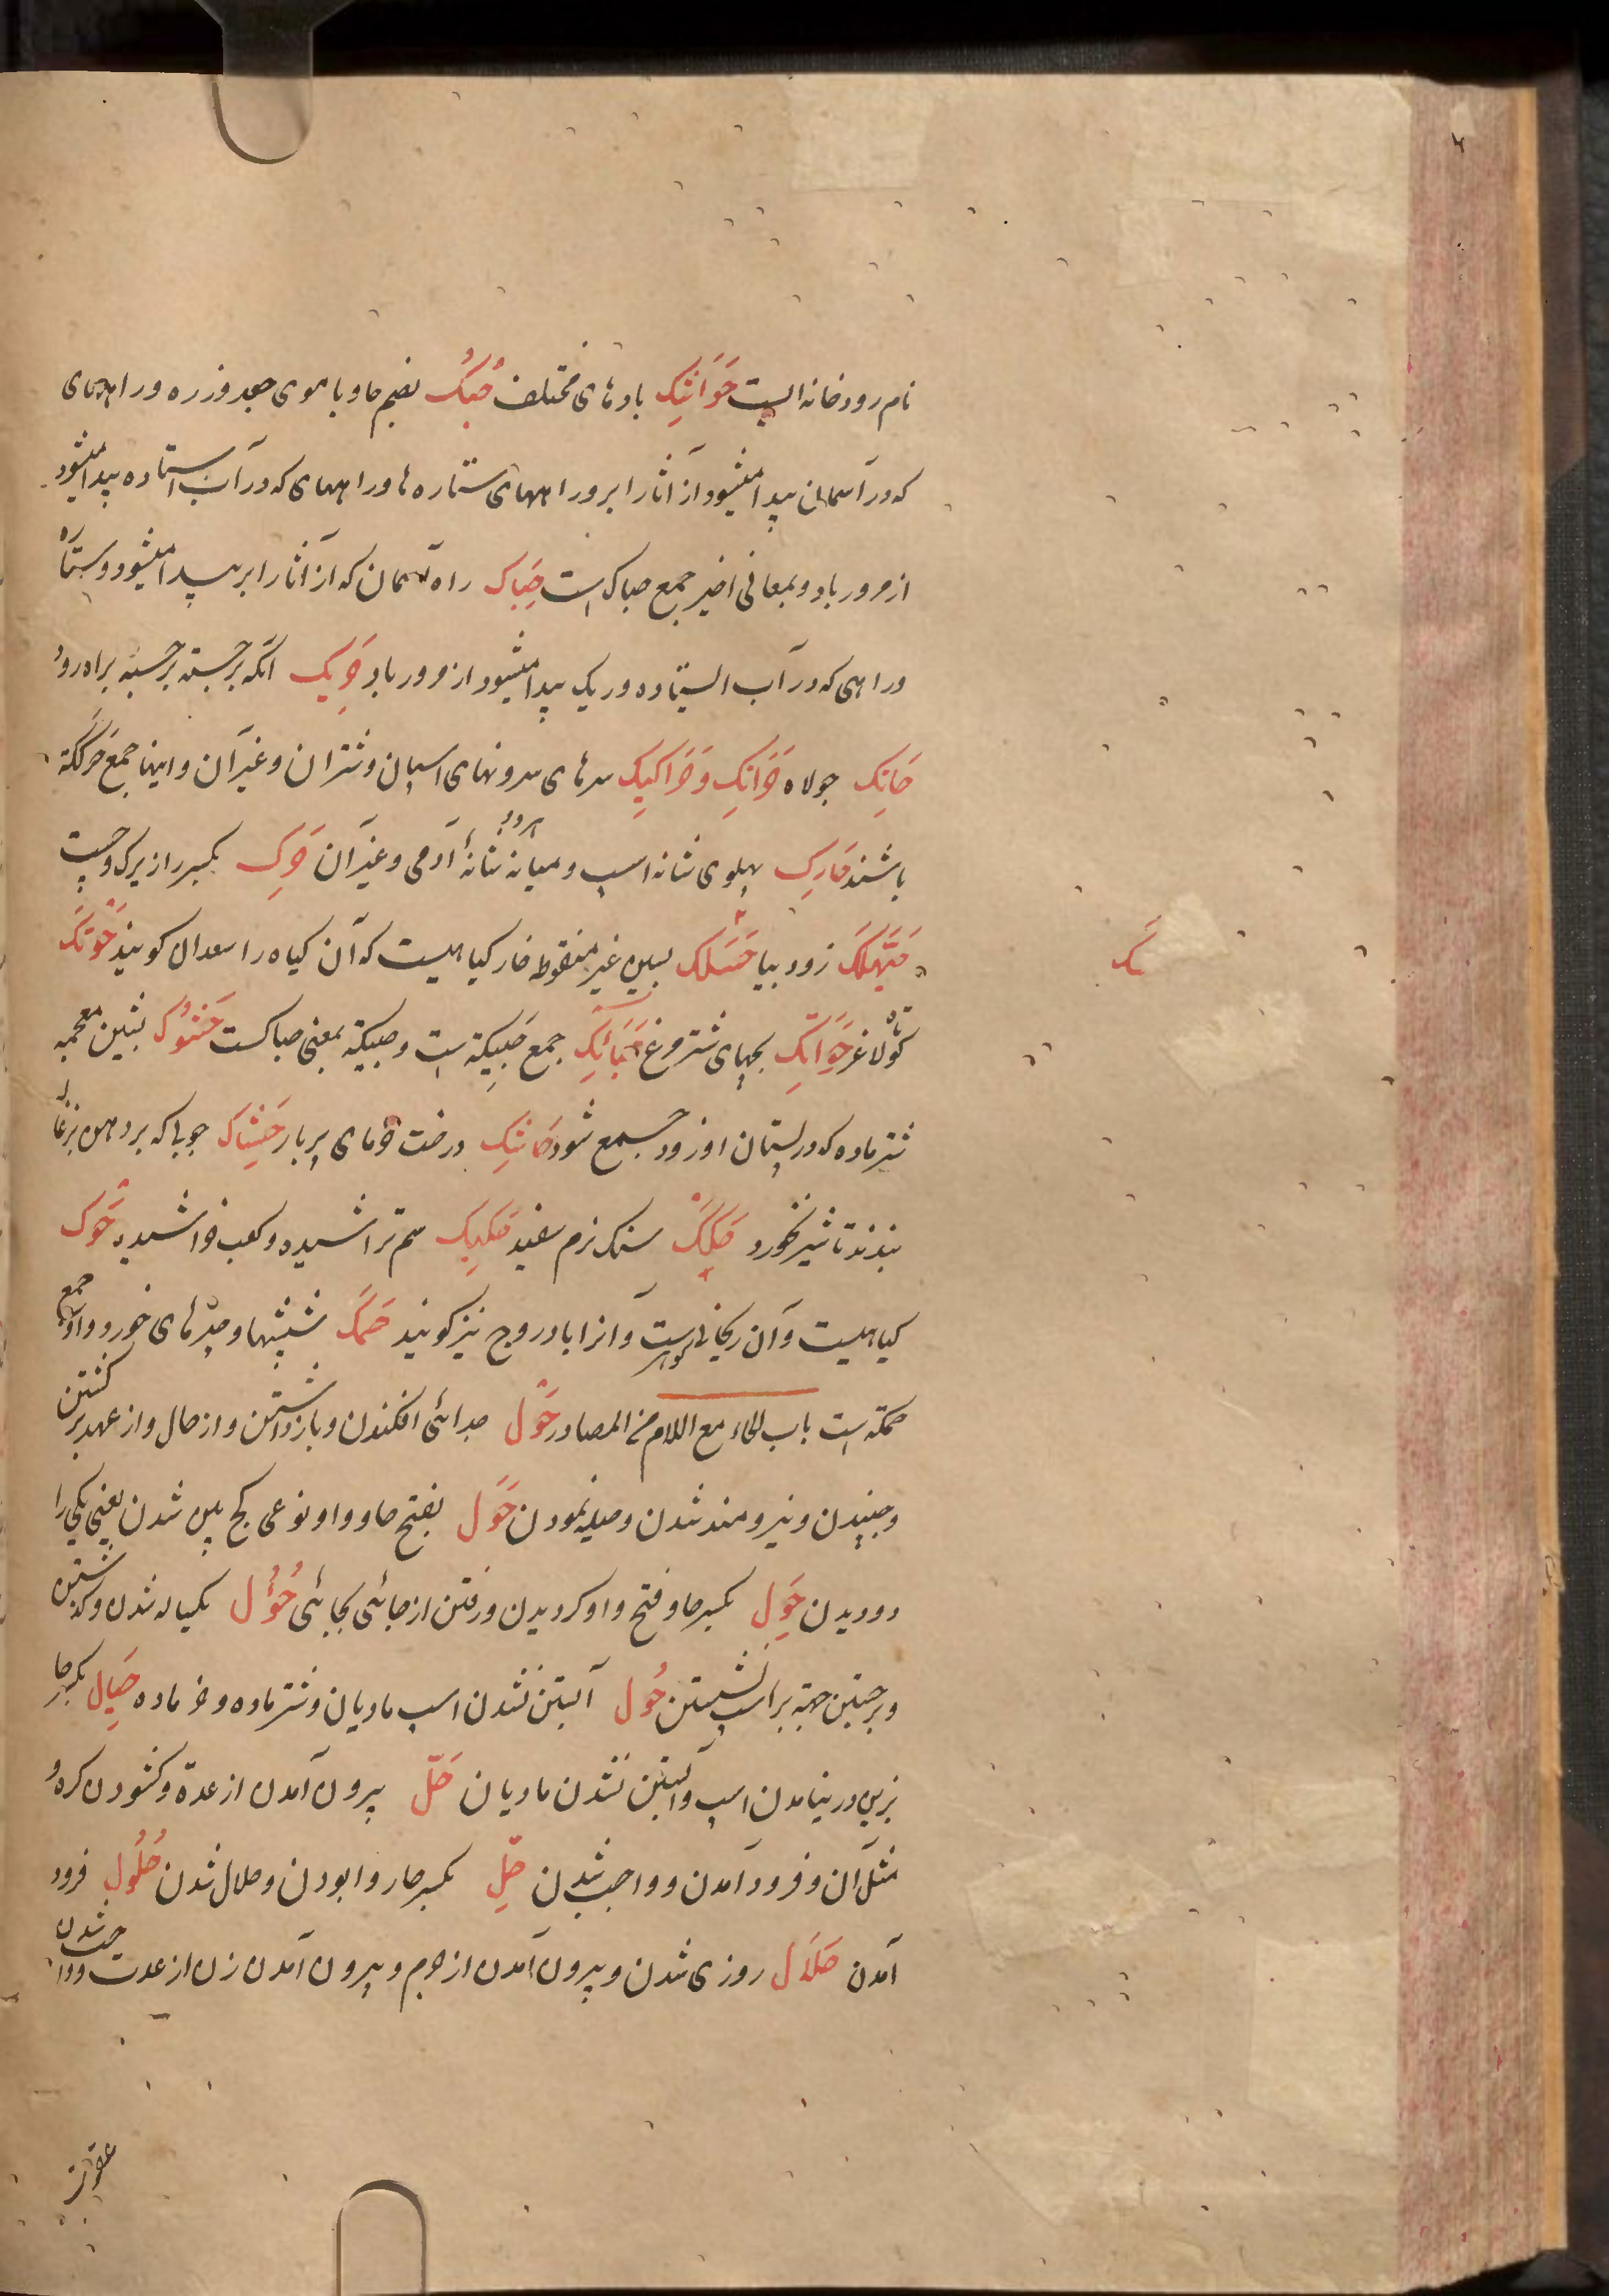 نام رودخانه ایست حَوَانِیک بادهای مختلف حُبُک بضم حا و با موی جعد و زره و راههای
که در آسمان پیدا میشود از آثار ابر و راههای ستاره ها و راههای که در آب استاده پیدا میشود
از مرور باد و بمعانی اخیر جمع حباک است حِبَاک راه آسمان که از آثار ابر پیدا میشود و ستاره
و راهی که در آب ایستاده و ریک پیدا میشود از مرور باد حَرِیک آنکه برجسته برجسته براه رود
حَایِک جولاه حَرَاکِک وَ حَرَاکِیک سرهای سرونهای اسپان و شتران و غیر آن و اینها جمع حَرکَکَة
باشند حَارِک پهلوی شانه اسپ و میانه هر دو شانهٔ آدمی و غیر آن حَرِک بکسر را زیرک و چست
حَیَّهَلَکَ زود بیا حَسَک بسین غیر منقوطه خار کیاهیست که آن کیاه را سعدان کویند حَوتَک
کوتاه لاغر حَوَاتِک بچهای شتر مرغ حَبَائِک جمع حَبِیکَة است و حبیکة بمعنی حباکست حَشُوک بشین معجمه
شتر ماده که در پستان او زود جمع شود حَاشِک درخت خرمای پر بار حِشَاک چوبی که بر دهن بزغاله
بندند تا شیر نخورد حَکَک سنک نرم سفید حَکِیک سم تراشیده و کعب خراشیده حَوک
کیاهیست و آن ریحان کوهیست و آنرا بادروج نیز کویند حَمَک شپشها و چیزهای خورد و او جمع
حمکة است باب الحاء مع اللام من المصادر حَوْل جدائی افکندن و باز داشتن و از حال و از عهد بر کشتن
و جنبیدن و نیرومند شدن و حیله نمودن حَوَل بفتح حا و واو نوعی کج بین شدن یعنی یکی را
دو دیدن حِوَل بکسر حا و فتح واو کردیدن و رفتن از جائی بجائی حُؤُل یکساله شدن و کذشتن
و برجستن جهة بر اسپ نشستن حُول آبستن نشدن اسپ مادیان و شتر ماده و خر ماده حِیَال بکسر حا
بزیر در نیامدن اسپ و آبستن نشدن مادیان حَلّ بیرون آمدن از عدة و کشودن کره و
مثل آن و فرود آمدن و واجب شدن حِلّ بکسر حا روا بودن و حلال شدن حُلُول فرود
آمدن حَلَال روزی شدن و بیرون آمدن از حرم و بیرون آمدن زن از عدت و واجب شدن
عقوبت